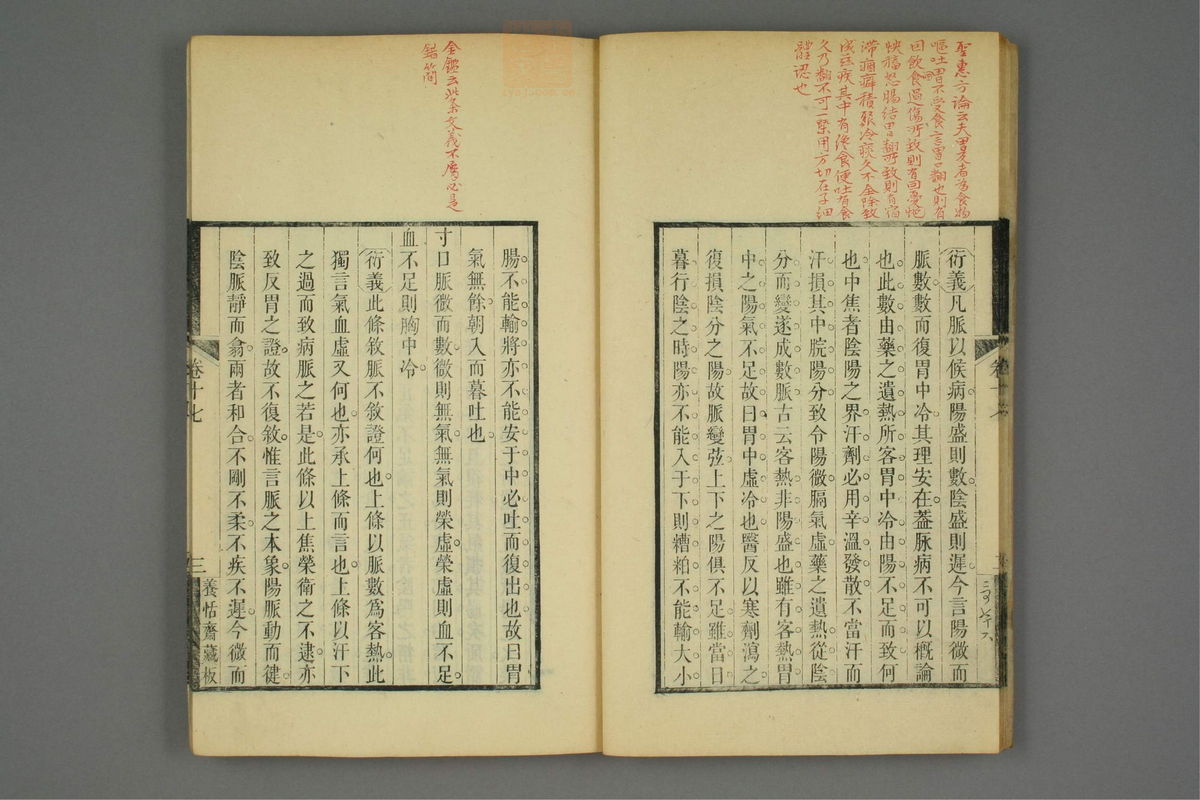 聖惠方論云夫胃反者為食物
嘔吐胃不受食言胃口翻也則有
因飲食過傷所致則有因憂悒
怏悒怒腸結胃翻所致則有宿
滯痼癖積聚冷痰久不全除致
成茲疾其中有纔食便吐有食
久乃翻不可一槩用方切在子細
體認也
衍義凡脈以候病陽盛則數陰盛則遲今言陽微而
脈數數而復胃中冷其理安在蓋脉病不可以概論
也此數由藥之遺熱所客胃中冷由陽不足而致何
也中焦者陰陽之界汗劑必用辛溫發散不當汗而
汗損其中脘陽分致令陽微膈氣虛藥之遺熱從陰
分而變遂成數脈古云客熱非陽盛也雖有客熱胃
中之陽氣不足故曰胃中虛冷也醫反以寒劑瀉之
復損陰分之陽故脈變弦上下之陽俱不足雖當日
暮行陰之時陽亦不能入于下則糟粕不能輸大小
卷十七
腸不能輸將亦不能安于中必吐而復出也故曰胃
氣無餘朝入而暮吐也
寸口脈微而數微則無氣無氣則榮虛榮虛則血不足
血不足則胸中冷
衍義此條敘脈不敘證何也上條以脈數爲客熱此
獨言氣血虛又何也亦承上條而言也上條以汗下
之過而致病脈之若是此條以上焦榮衛之不逮亦
致反胃之證故不復敘惟言脈之本象陽脈動而健
陰脈靜而翕兩者和合不剛不柔不疾不遲今微而
金鑑云此條文義不屬必是
錯簡
卷十七
三
養恬齋藏板